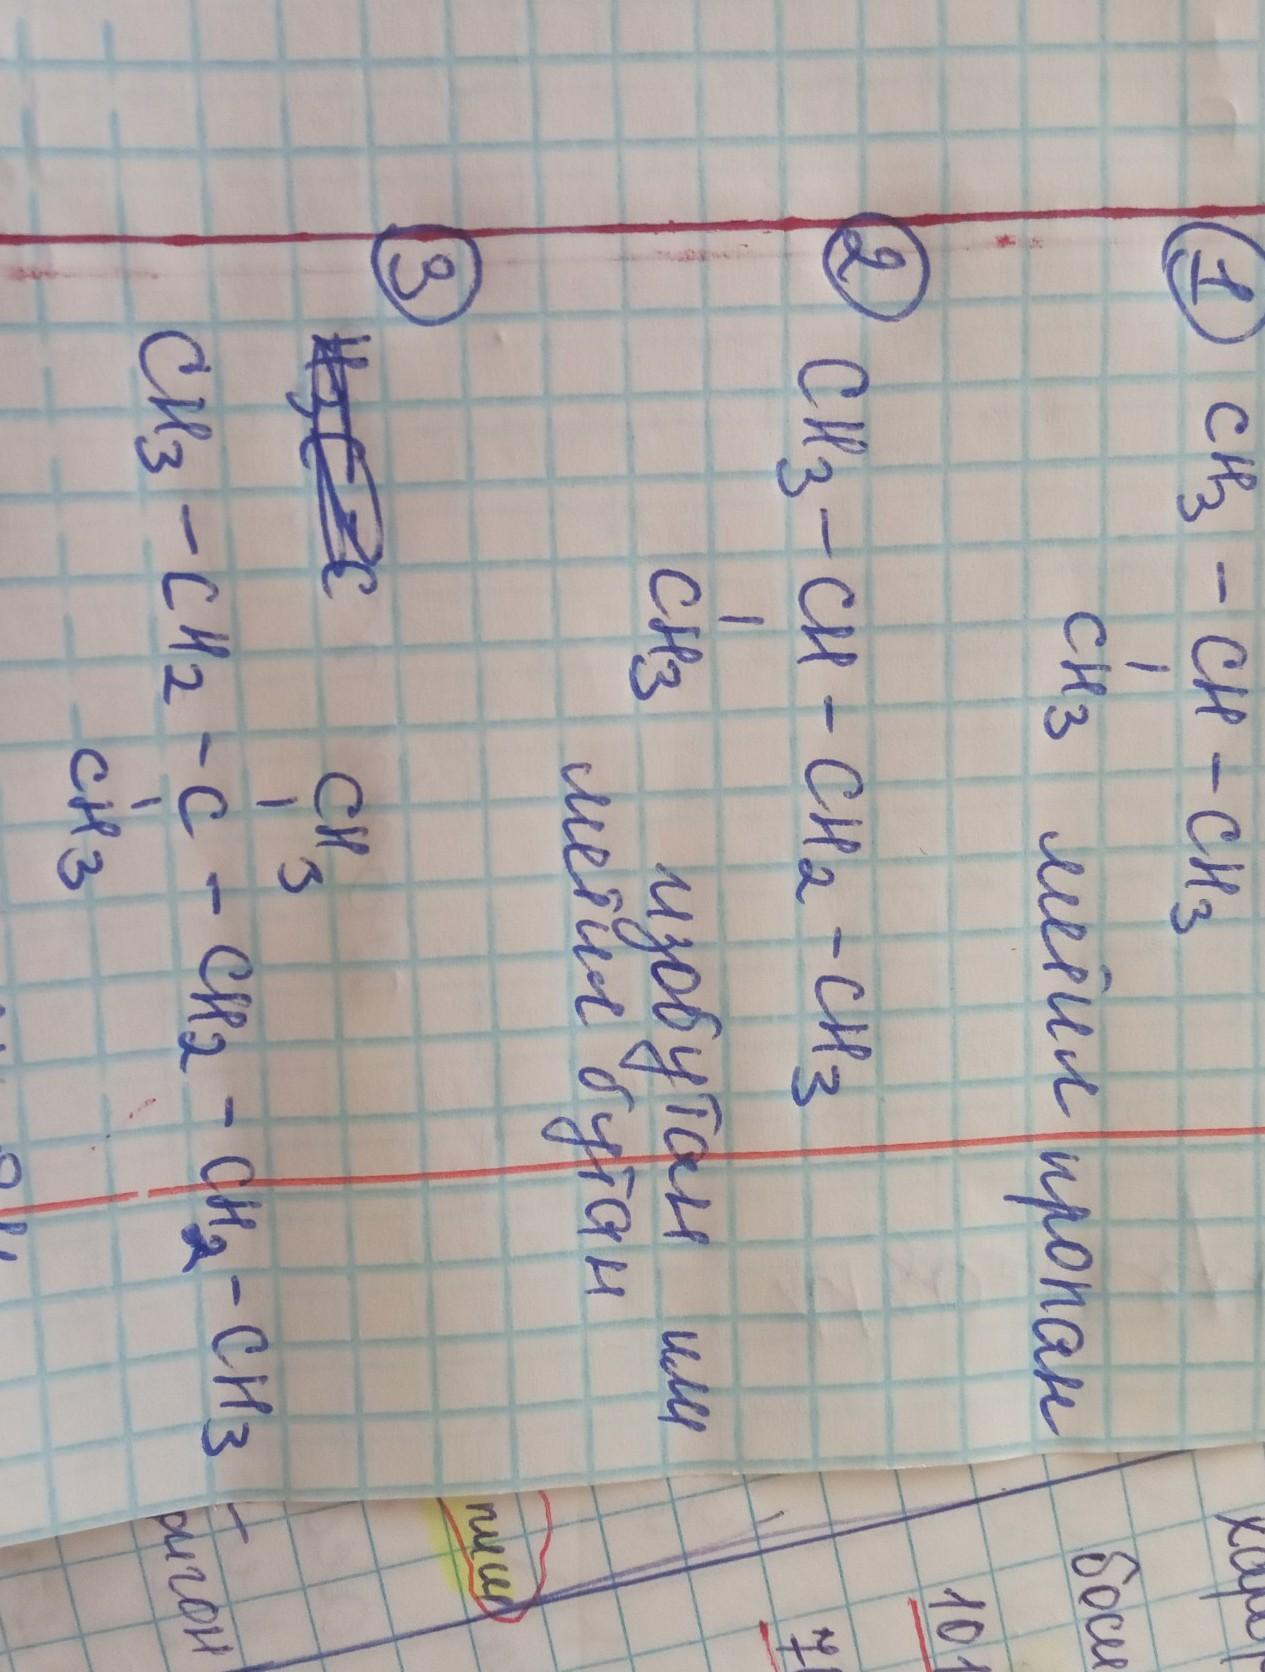 1 CH3 - CH - CH3
CH3 метил пропан
2 CH3 - CH - CH2 - CH3
CH3 изобутан или
метил бутан
3
CH3
CH3 - CH2 - C - CH2 - CH2 - CH3
CH3
101